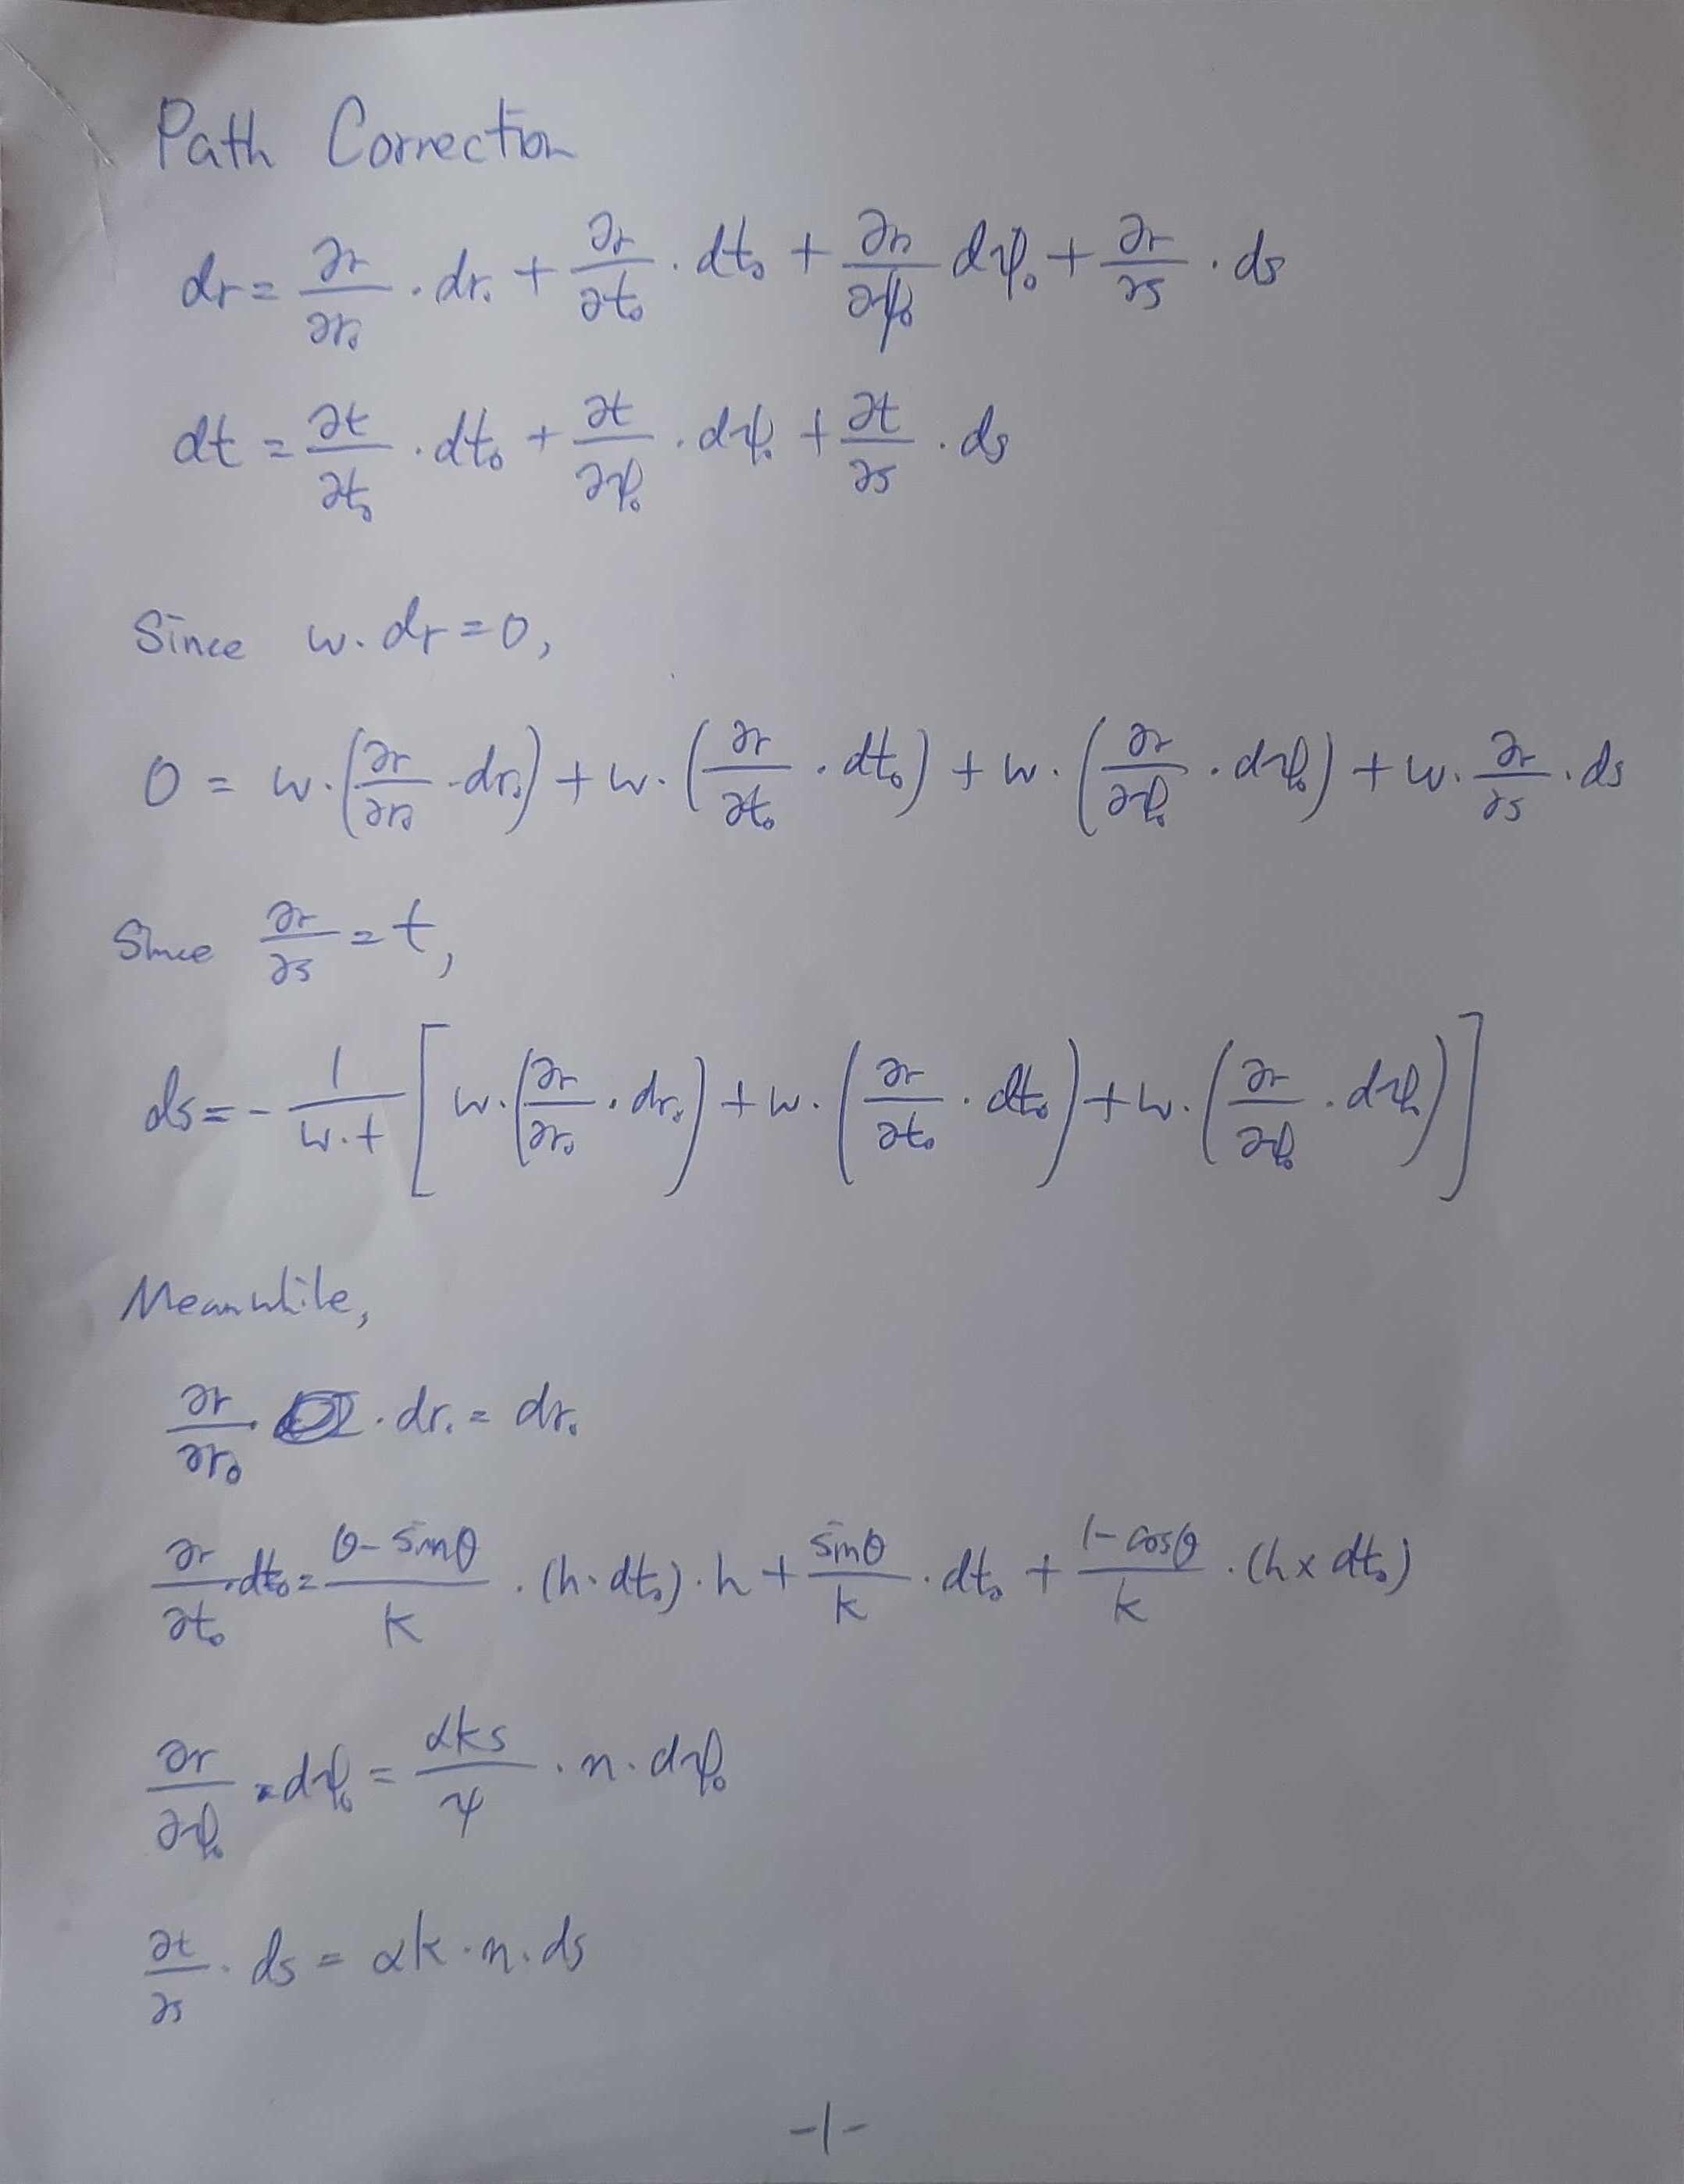 Path Correction
dr = ∂r/∂r₀ · dr₀ + ∂r/∂t₀ · dt₀ + ∂r/∂ψ₀ dψ₀ + ∂r/∂s · ds
dt = ∂t/∂t₀ · dt₀ + ∂t/∂ψ₀ · dψ₀ + ∂t/∂s · ds
Since w · dr = 0,
0 = w · (∂r/∂r₀ · dr₀) + w · (∂r/∂t₀ · dt₀) + w · (∂r/∂ψ₀ · dψ₀) + w · ∂r/∂s · ds
Since ∂r/∂s = t,
ds = - 1/(w · t) [w · (∂r/∂r₀ · dr₀) + w · (∂r/∂t₀ · dt₀) + w · (∂r/∂ψ₀ · dψ₀)]
Meanwhile,
∂r/∂r₀ · dr₀ = dr₀
∂r/∂t₀ · dt₀ = (θ - sinθ)/k · (h · dt₀) · h + sinθ/k · dt₀ + (1 - cosθ)/k · (h × dt₀)
∂r/∂ψ₀ · dψ₀ = αks/ψ · n · dψ₀
∂t/∂s · ds = αk · n · ds
-1-